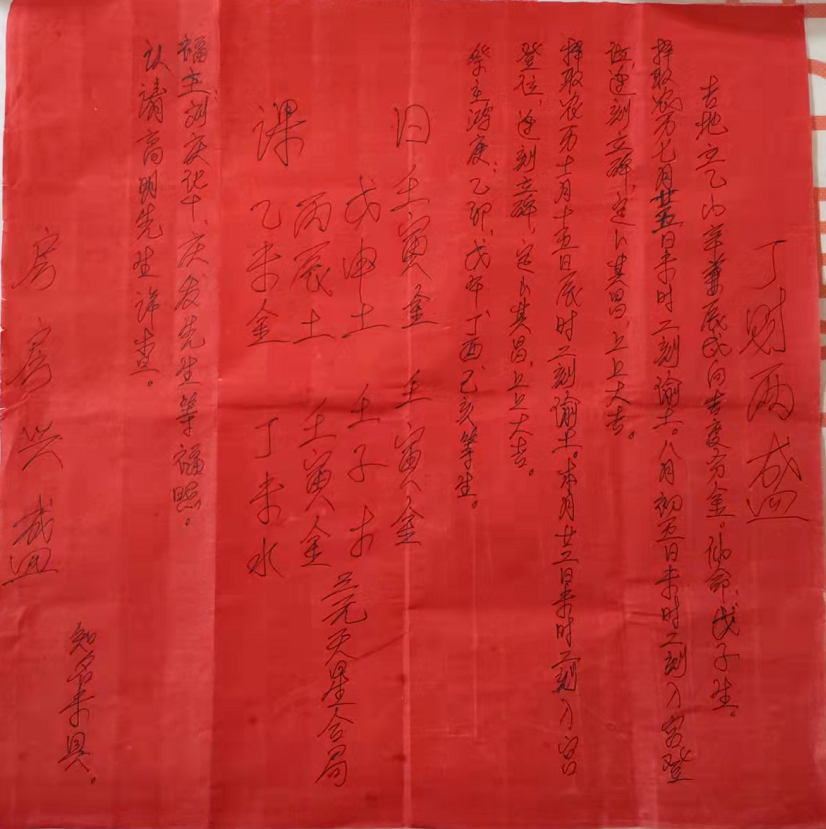 丁财两盛
吉地立乙山辛兼辰戌向吉度分金。仙命，戊子生。
择取农历七月廿五日未时二刻谕土。八月初五日未时二刻入宫登
位，逢刻立碑，定卜其昌，上上大吉。
择取农历十月十五日辰时二刻谕土。本月廿二日未时二刻入宫
登位，逢刻立碑，定卜其昌，上上大吉。
祭主鸿庚，乙卯、戊午、丁酉、己亥等生。
日 壬寅金 壬寅金
戊申土 壬子木
丙辰土 壬寅金 三元天星合局
课 乙未金 丁未水
福主刘庆 十、庆发先生等福照。
以请高明先生详查。
知名未具。
房房兴盛